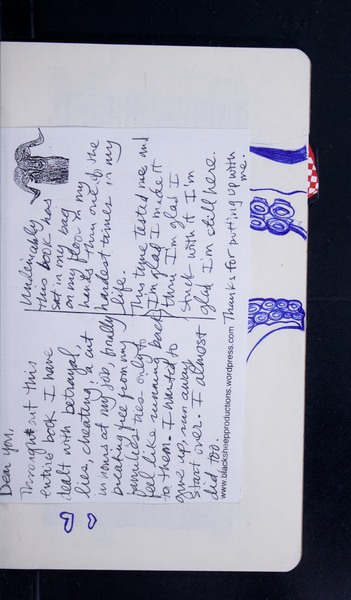 Dear you,
Throughout this
entire book I have
dealt with betrayal,
lies, cheating, a cut
in hours at my job, finally
breaking free from my
families ties only to
feel like running back
to them. I wanted to
give up, run away
start over. I almost
did too.
www.blacksheepproductions.wordpress.com
Undeniably
this book has
sat in my bag
on my floor in my
hands thru one of the
hardest times in my
life.
This time tested me and
I'm glad I made it
thru I'm glad I
stuck with it I'm
glad I'm still here.
Thanks for putting up with
me.